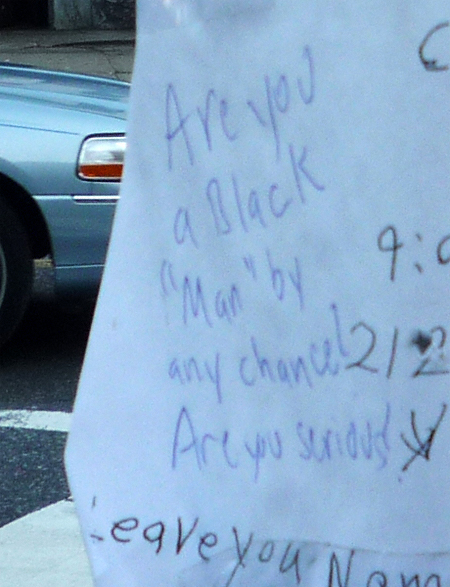 Are you
a Black
"Man" by
any chance!
Are you serious!
9:0
212
Leave you Nam